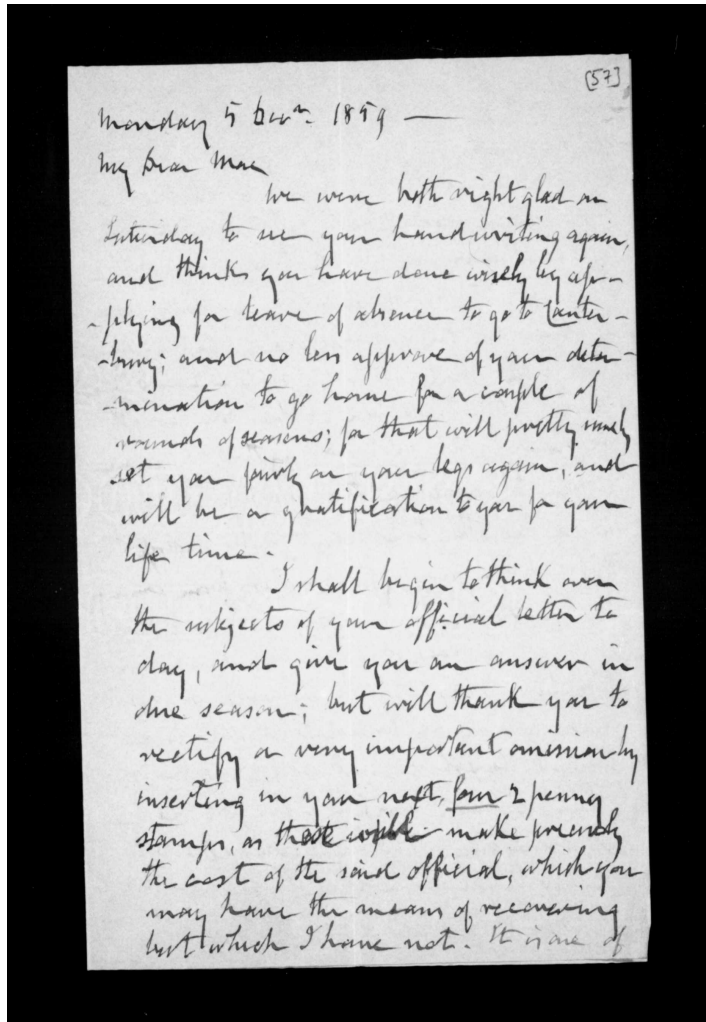 [57]
Monday 5 Decr. 1859 —
My Dear Mac
We were both right glad on
Saturday to see your handwriting again,
and thinks you have done wisely by ap-
-plying for leave of absence to go to Canter-
-bury; and no less approve of your deter-
-mination to go home for a couple of
rounds of seasons; for that will pretty surely
set your on your legs again, and
will be a gratification to you for your
life time.
I shall begin to think over
the subjects of your official letter to
day, and give you an answer in
due season; but will thank you to
rectify a very important omission by
inserting in your next, four 2 penny
stamps, as these will make precisely
the cost of the said official, which you
may have the means of recovering
but which I have not. It is one of